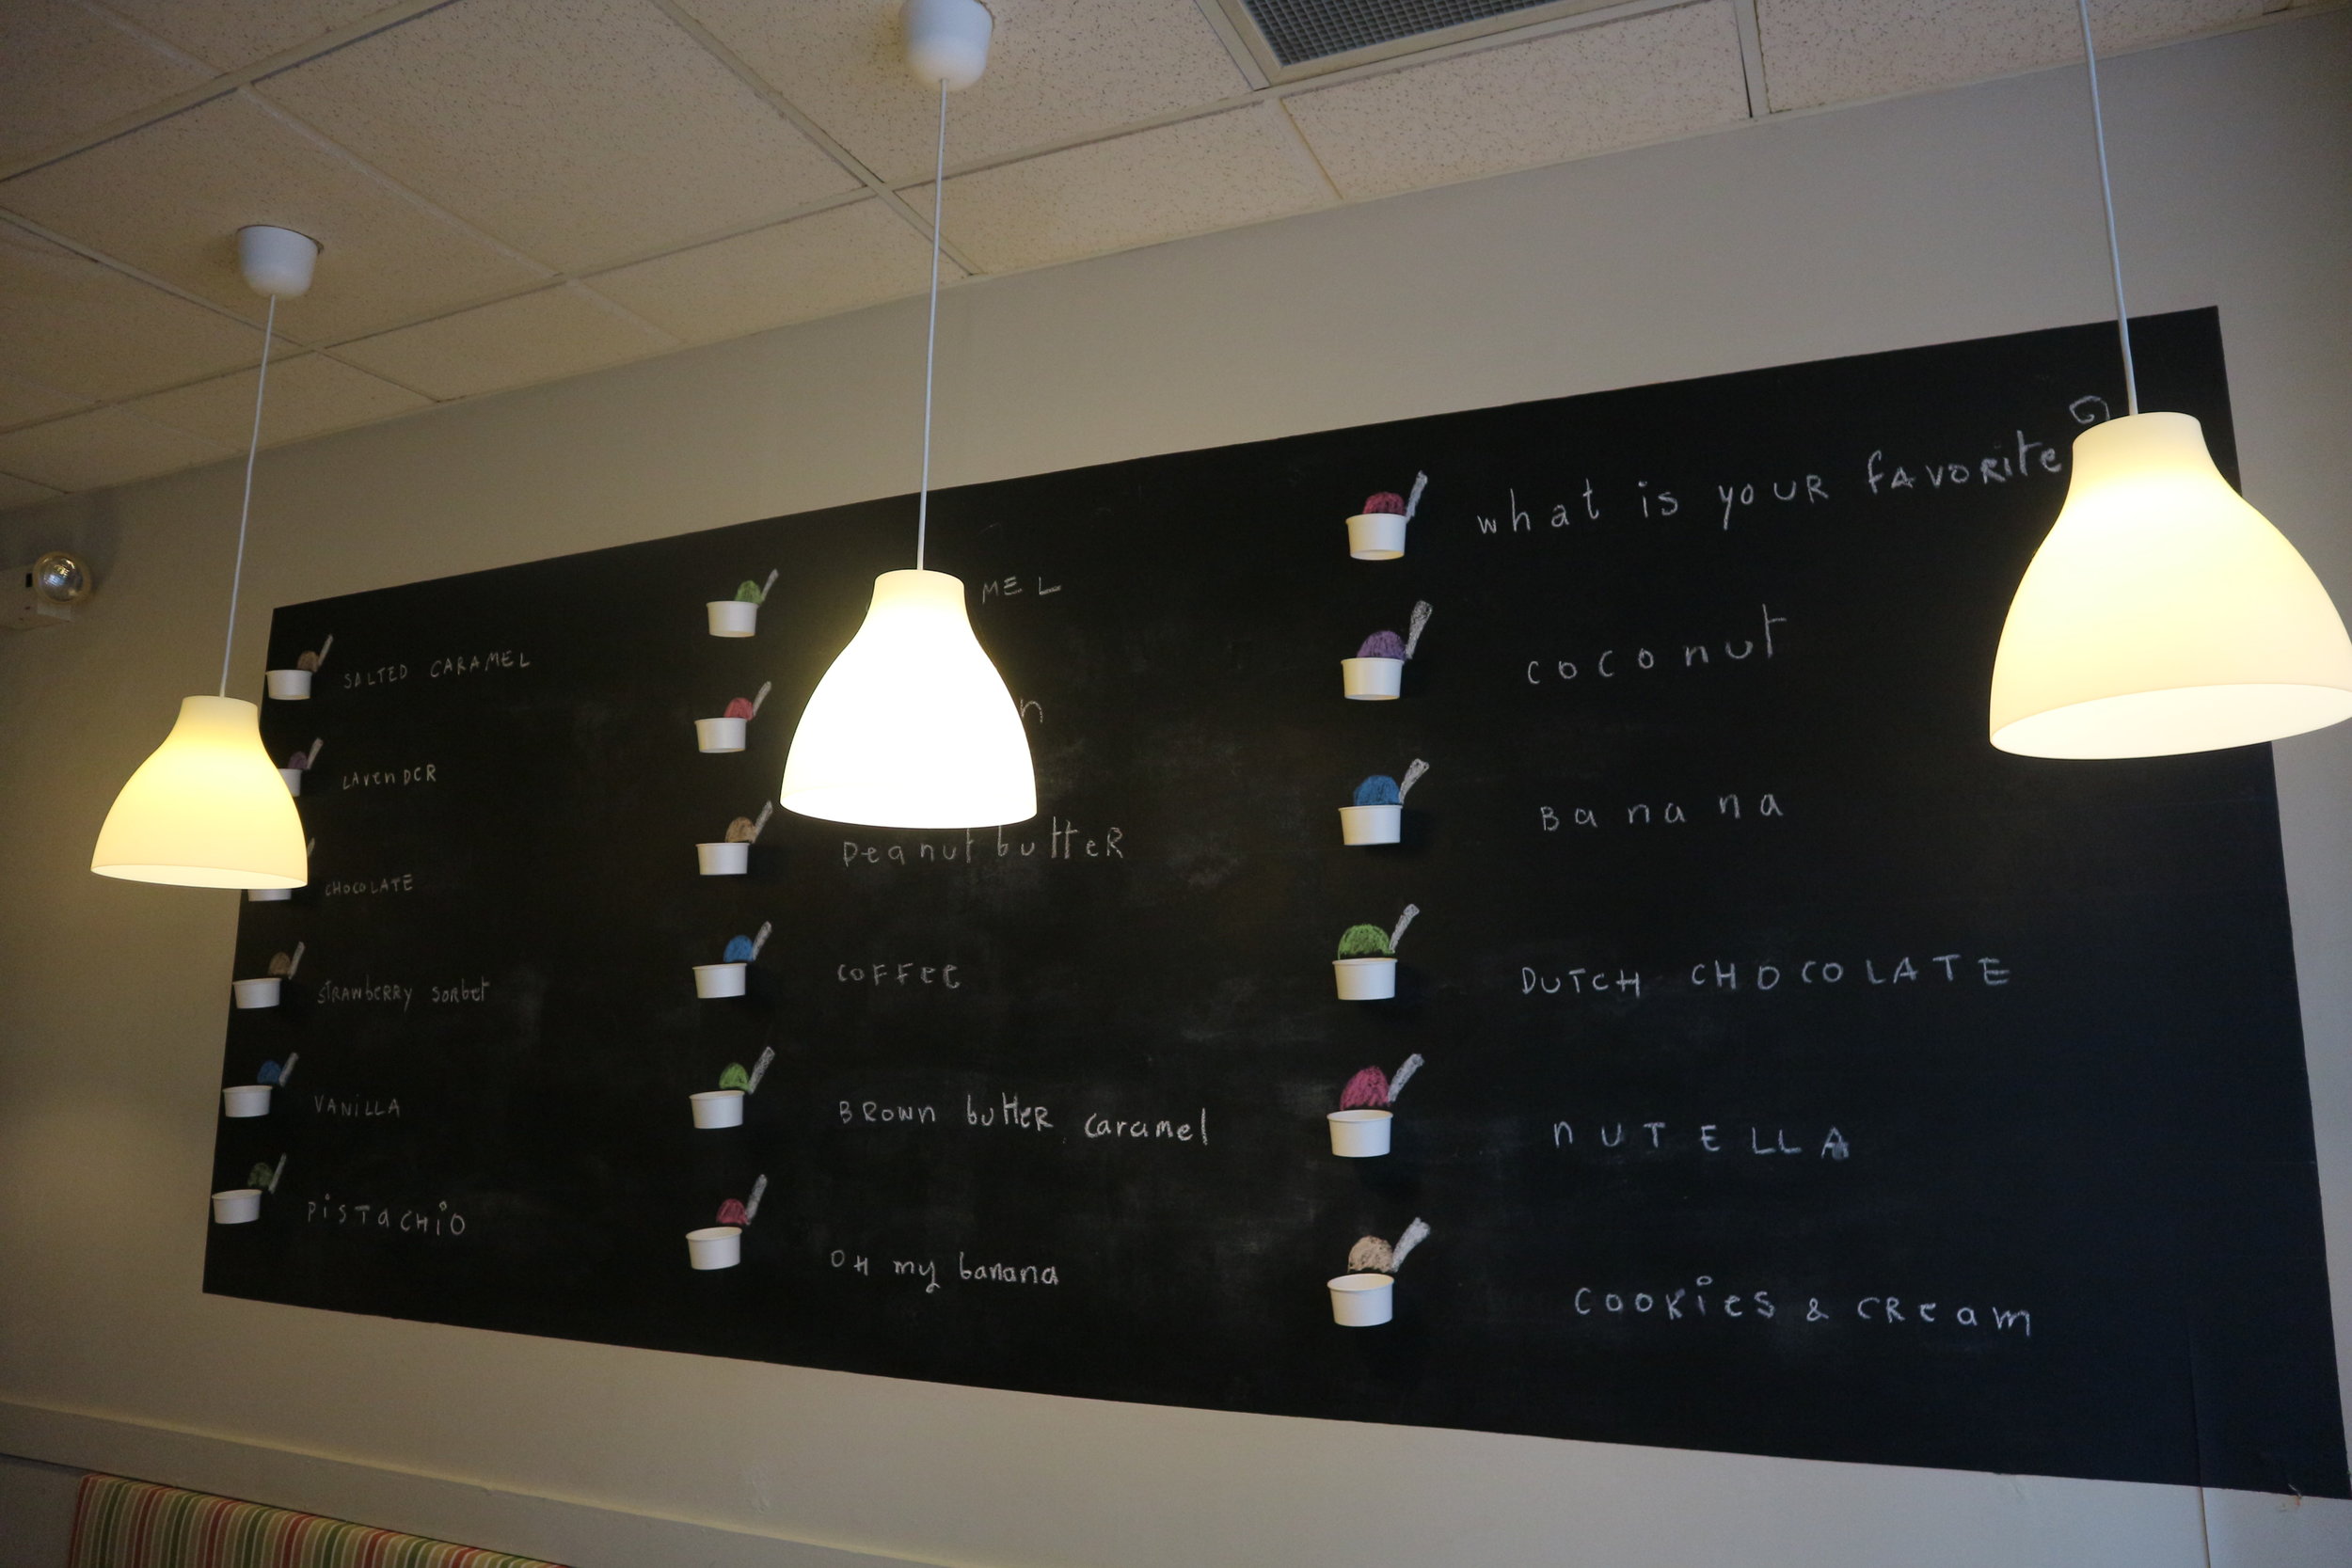 SALTED CARAMEL
LAvenDER
CHOCOLATE
STRAWbERRY SORbet
VANiLLA
PiSTaCHiO
Peanut butteR
COFFee
BROWn butteR caramel
OH my banana
what is yOUR fAVORite
coconut
Banana
DUTCH CHOCOLATE
nUTELLA
COOKieS & CReam